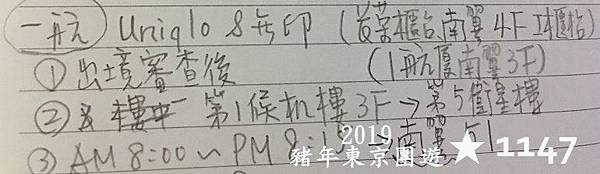 一航 Uniqlo 8無印 (長榮櫃台南翼4F I櫃怡)
① 出境審查後 (1航廈南翼3F)
② 樓中 第1候机樓3F→第5衛星樓
③ AM 8:00~PM 8:15→南翼 51
2019
豬年東京團遊★1147